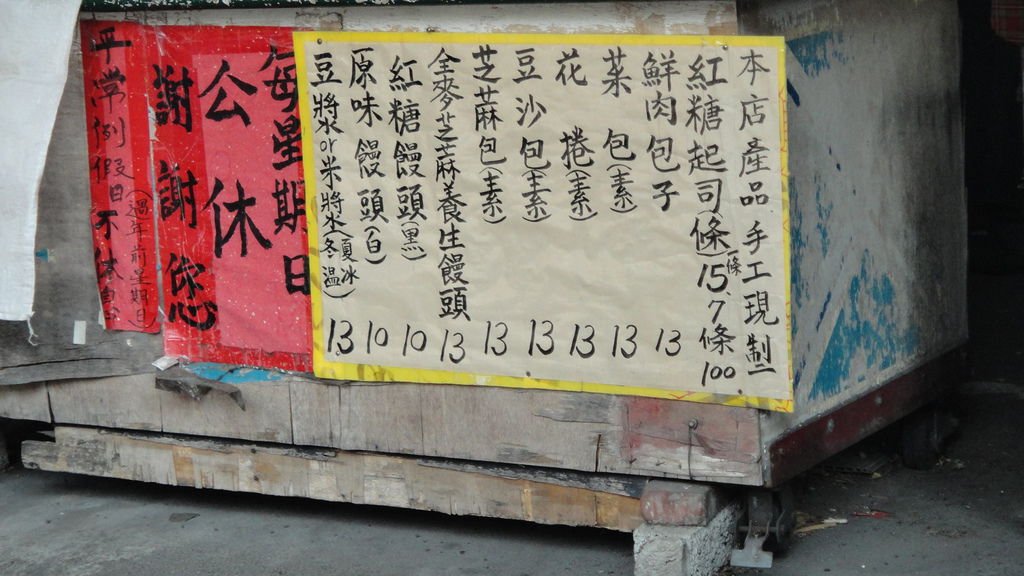 本店產品手工現製
紅糖起司(條)15條.7條100
鮮肉包子 13
菜包(素) 13
花捲(素) 13
豆沙包(素) 13
芝麻包(素) 13
全麥芝麻養生饅頭 13
紅糖饅頭(黑) 10
原味饅頭(白) 10
豆漿or米漿(夏冰冬溫) 13
每星期日
公休
謝謝您
平常例假日不休息
(過年前星期日)